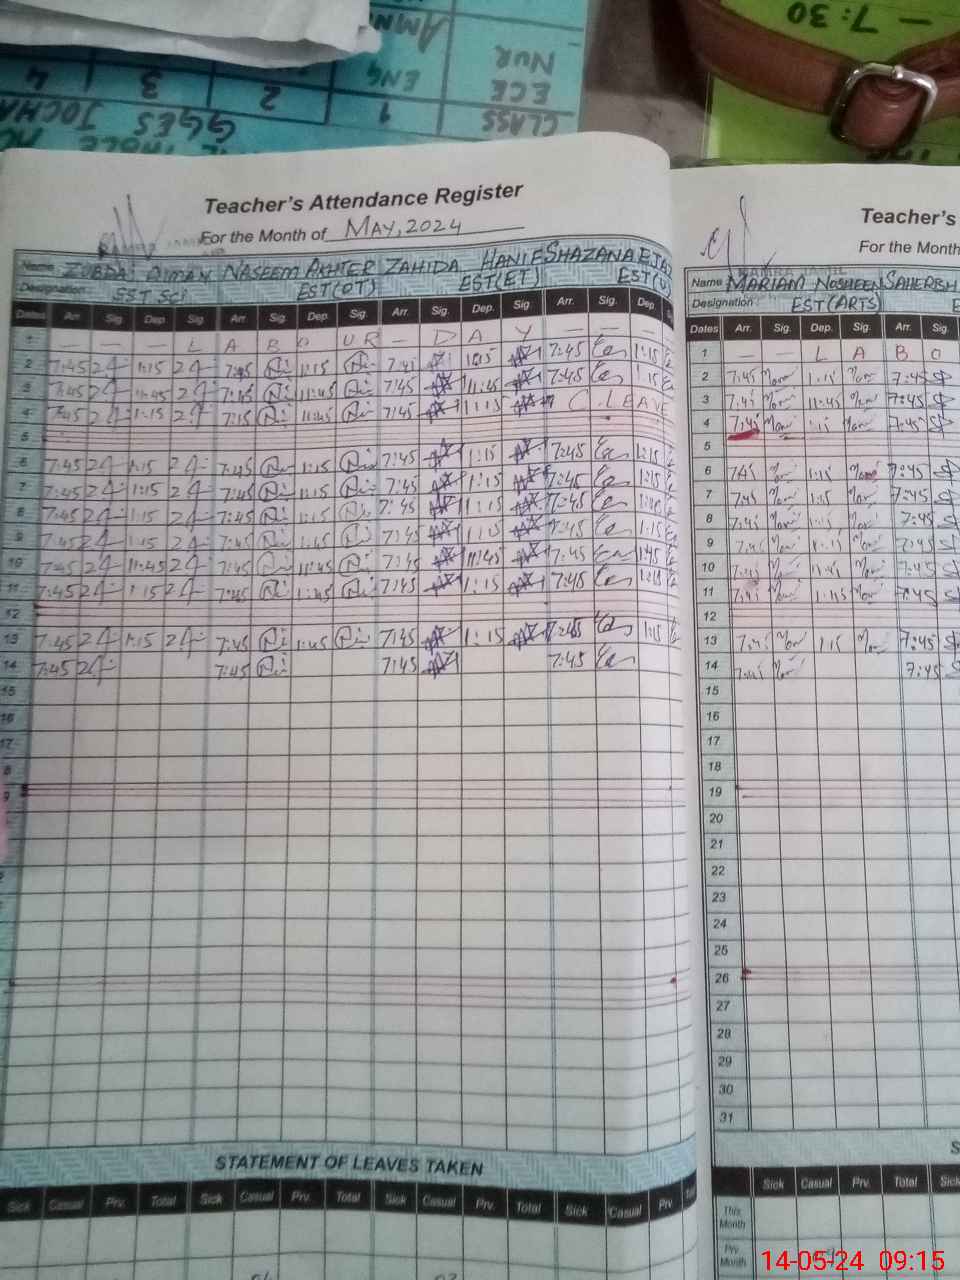 — 7:30
AMN
NUR
ECE ENG
4 3 2 1 CLASS
GGES JOCHA
Teacher's Attendance Register
For the Month of MAY, 2024
Name ZUBDA AIMAN NASEEM AKHTER ZAHIDA HANIF SHAZANA EJAZ
Designation SST SCI EST(OT) EST(ET)
Dates Arr. Sig. Dep. Sig. Arr. Sig. Dep. Sig. Arr. Sig. Dep. Sig. Arr. Sig. Dep.
1 — — — L A B O U R — D A Y — —
2 7:45 1:15 7:45 1:15 7:45 1:15 7:45 1:15
3 7:45 11:45 7:45 11:45 7:45 11:45 7:45 1:15
4 7:45 1:15 7:45 7:45 1:15 C. LEAVE
5
6 7:45 1:15 7:45 1:15 7:45 1:15 7:45 1:15
7 7:45 1:15 7:45 1:15 7:45 1:15 7:45 1:15
8 7:45 1:15 7:45 1:15 7:45 1:15 7:45
9 7:45 1:15 7:45 7:45 1:15 7:45 1:15
10 7:45 11:45 7:45 11:45 7:45 11:45 7:45 1:45
11 7:45 1:15 7:45 7:45 1:15 7:45
12
13 7:45 1:15 7:45 1:45 7:45 1:15 7:45 1:15
14 7:45 7:45 7:45 7:45
15
16
17
STATEMENT OF LEAVES TAKEN
Sick Casual Prv. Total Sick Casual Prv. Total Sick Casual Prv. Total Sick Casual Prv
Teacher's
For the Month
Name MARIAM NOSHEEN SAHERBSH
Designation EST(ARTS)
Dates Arr. Sig. Dep. Sig. Arr. Sig.
1 — — L A B O
2 7:45 1:15 7:45
3 7:45 11:45 7:45
4 7:45 1:15 7:45
5
6 7:45 1:15 7:45
7 7:45 1:15 7:45
8 7:45 1:15 7:45
9 7:45 1:15 7:45
10 7:45 11:45 7:45
11 7:45 1:15 7:45
12
13 7:45 1:15 7:45
14 7:45 7:45
15
16
17
18
19
20
21
22
23
24
25
26
27
28
29
30
31
Sick Casual Prv. Total Sick
This Month
Prv. Month
14-05-24 09:15